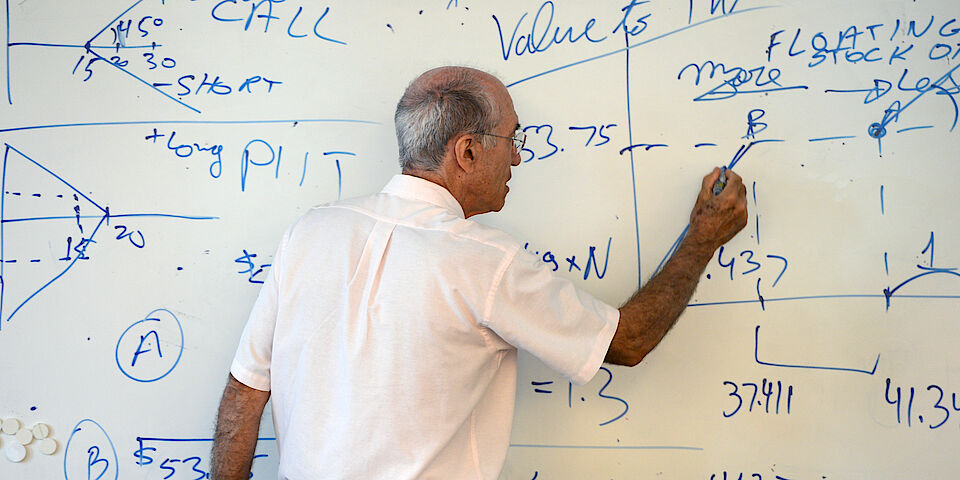 CALL
45°
15 20 30
SHORT
+Long PUT
15 20
A
B
$53.
Value to
53.75
x N
= 1.3
FLOATING
STOCK
more
B A
.437
1
37.411 41.34